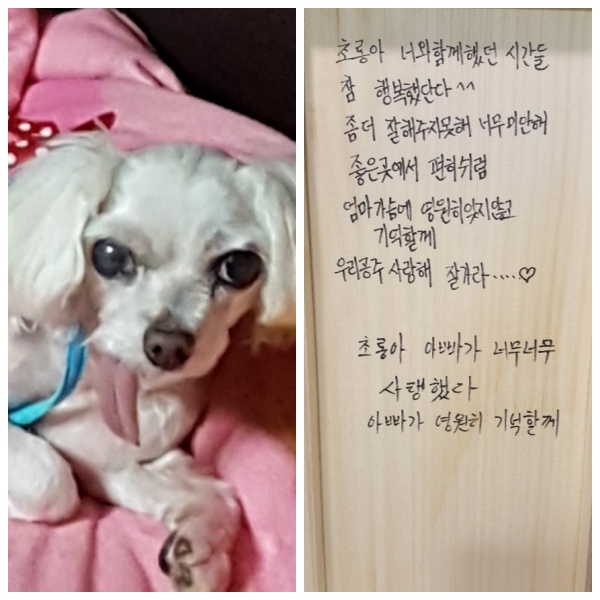 초롱아 너와함께했던 시간들
참 행복했단다^^
좀더 잘해주지못해 너무미안해
좋은곳에서 편히쉬렴
엄마가슴에 영원히잊지않고
기억할께
우리공주 사랑해 잘가라....♡
초롱아 아빠가 너무너무
사랭했다
아빠가 영원히 기억할께